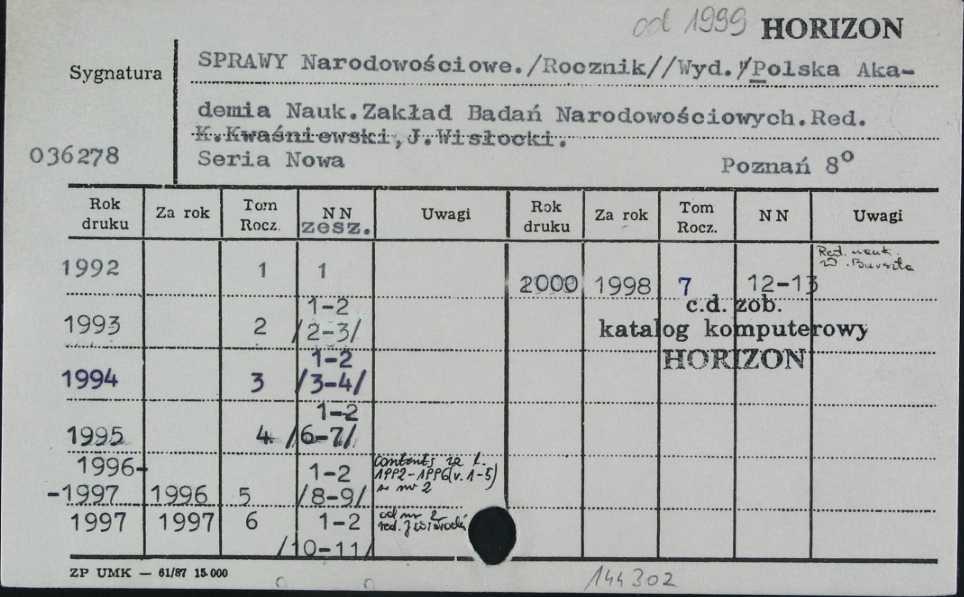 od 1999 HORIZON
Sygnatura
SPRAWY Narodowościowe./Rocznik//Wyd./Polska Aka-
demia Nauk.Zakład Badań Narodowościowych.Red.
K.Kwaśniewski,J.Wisłocki.
036278
Seria Nowa Poznań 8°
Rok druku Za rok Tom Rocz. NN zesz. Uwagi Rok druku Za rok Tom Rocz. NN Uwagi
1992 1 1
Red. nauk.
W. Burszta
2000 1998 7 12-13
1993 2 1-2
/2-3/
c.d. zob.
katalog komputerowy
HORIZON
1994 3 1-2
/3-4/
1995 4 1-2
/6-7/
1996-
-1997 1996 5 1-2
/8-9/
contents za t.
1992-1996(v.1-5)
w nr 2
1997 1997 6 1-2
/10-11/
od nr 2
red. J
ZP UMK — 61/87 15.000
144302